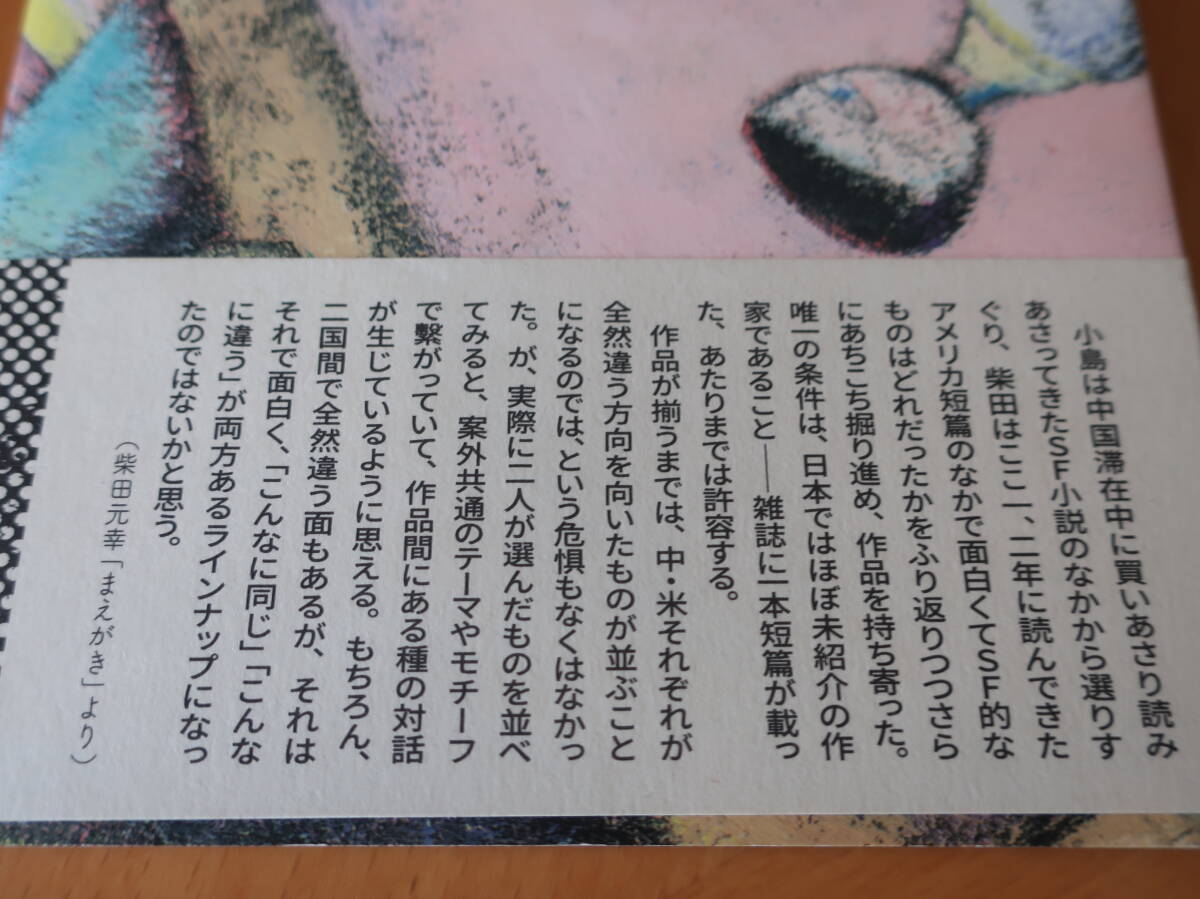 小島は中国滞在中に買いあさり読み
あさってきたＳＦ小説のなかから選りす
ぐり、柴田はここ一、二年に読んできた
アメリカ短篇のなかで面白くてＳＦ的な
ものはどれだったかをふり返りつつさら
にあちこち掘り進め、作品を持ち寄った。
唯一の条件は、日本ではほぼ未紹介の作
家であること――雑誌に一本短篇が載っ
た、あたりまでは許容する。
作品が揃うまでは、中・米それぞれが
全然違う方向を向いたものが並ぶこと
になるのでは、という危惧もなくはなかっ
た。が、実際に二人が選んだものを並べ
てみると、案外共通のテーマやモチーフ
で繫がっていて、作品間にある種の対話
が生じているように思える。もちろん、
二国間で全然違う面もあるが、それは
それで面白く、「こんなに同じ」「こんな
に違う」が両方あるラインナップになっ
たのではないかと思う。
（柴田元幸「まえがき」より）